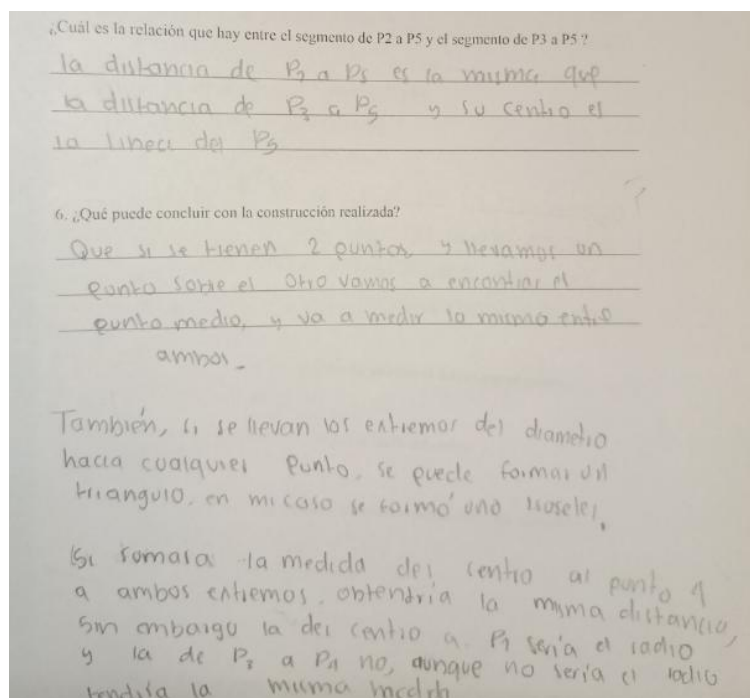 ¿Cuál es la relación que hay entre el segmento de P2 a P5 y el segmento de P3 a P5 ?
la distancia de P2 a P5 es la misma que
la distancia de P3 a P5 y su centro es
la linea del P5
6. ¿Qué puede concluir con la construcción realizada?
Que si se tienen 2 puntos, y llevamos un
punto sobre el otro vamos a encontrar el
punto medio, y va a medir lo mismo entre
ambos.
También, si se llevan los extremos del diametro
hacia cualquier punto, se puede formar un
triangulo, en mi caso se formó uno isoseles.
Si tomara la medida del centro al punto 1
a ambos extremos, obtendría la misma distancia,
sin embargo la del centro a P1 sería el radio
y la de P2 a P1 no, aunque no sería el radio
tendría la misma medida